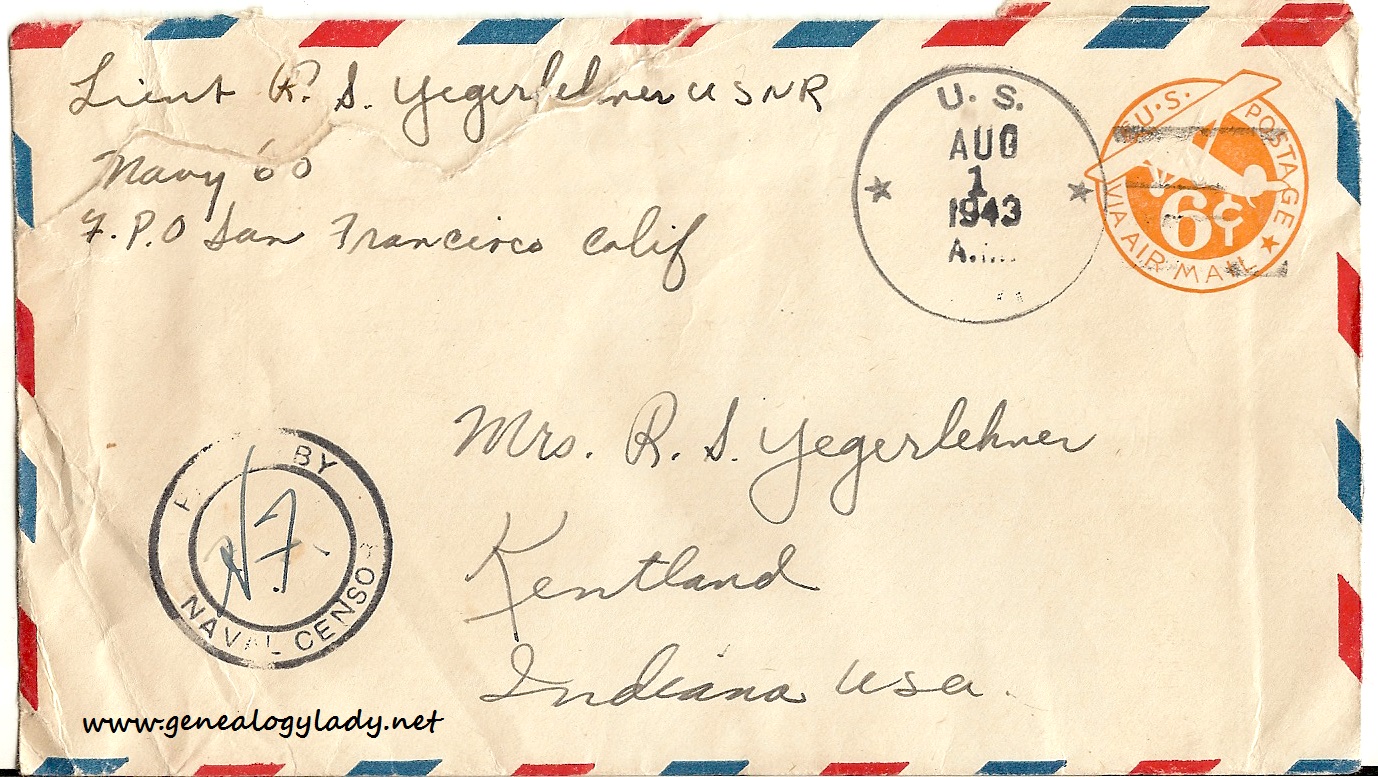 Lieut R. S. Yegerlehner USNR
Navy 60
F.P.O San Francisco Calif
U. S.
AUG
1
1943
U.S. POSTAGE
6¢
VIA AIR MAIL
Mrs. R. S. Yegerlehner
Kentland
Indiana USA.
BY
NAVAL CENSOR
www.genealogylady.net